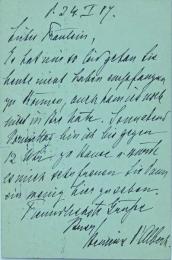 B. 24 I 07.
Liebes Fräulein,
Es hat mir so leid gethan Sie
heute nicht haben empfangen
zu können, auch
nicht in
Vormittag bin ich bis gegen
12 Uhr zu Hause u würde
es mich sehr freuen Sie dann
ein wenig hier zu sehen.
Freundlichste Grüsse
Ihre
d'Albert.